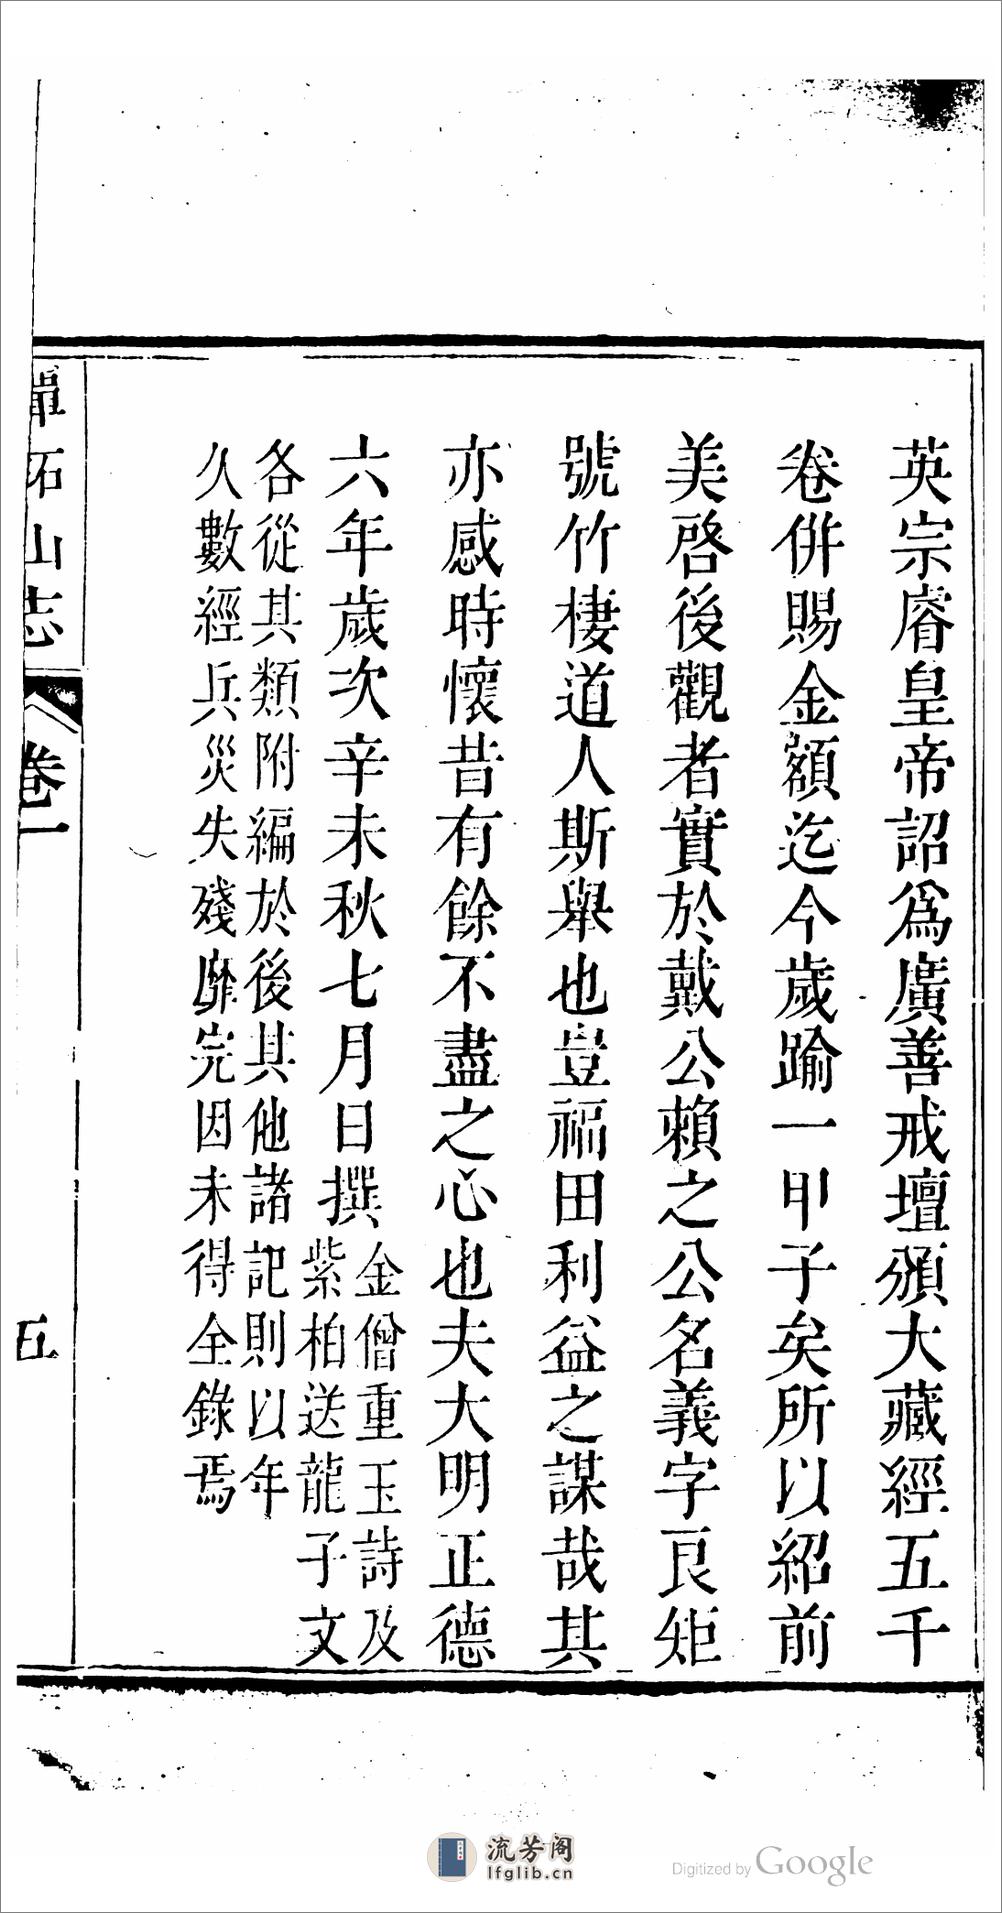 英宗睿皇帝詔爲廣善戒壇頒大藏經五千
卷併賜金額迄今歲踰一甲子矣所以紹前
美啓後觀者實於戴公賴之公名義字良矩
號竹棲道人斯舉也豈福田利益之謀哉其
亦感時懷昔有餘不盡之心也夫大明正德
六年歲次辛未秋七月日撰
金僧重玉詩及
紫柏送龍子文
各從其類附編於後其他諸記則以年
久數經兵災失殘靡完因未得全錄焉
石山志
卷一
五
流芳阁
lfglib.cn
Digitized by Google